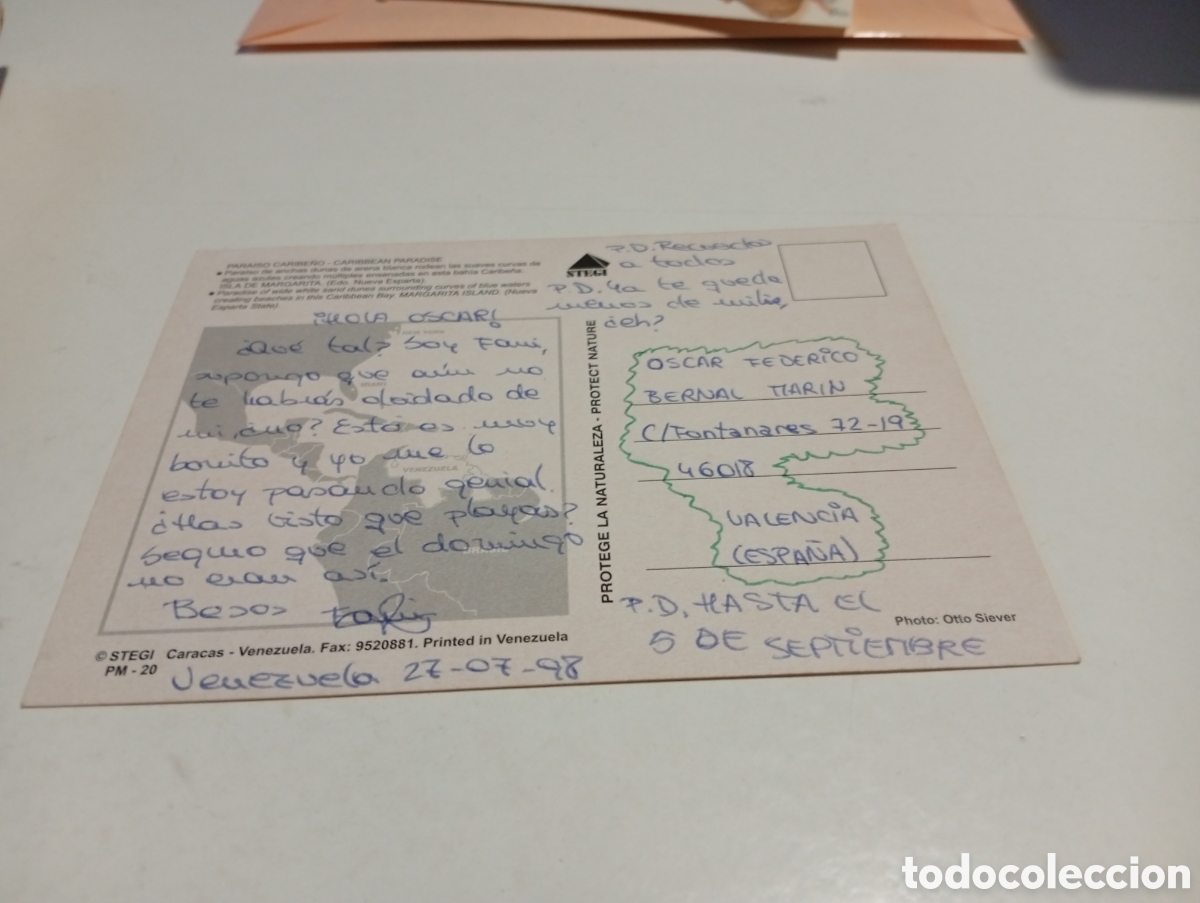 PARAISO CARIBEÑO - CARIBBEAN PARADISE
● Paraiso de anchas dunas de arena blanca rodean las suaves curvas de
aguas azules creando múltiples ensenadas en esta bahía Caribeña.
ISLA DE MARGARITA. (Edo. Nueva Esparta).
● Paradise of wide white sand dunes surrounding curves of blue waters
creating beaches in this Caribbean Bay. MARGARITA ISLAND. (Nueva
Esparta State)
¡HOLA OSCAR!
¿Qué tal? Soy Fani,
supongo que aún no
te habrás olvidado de
mi, ¿no? Esto es muy
bonito y yo me lo
estoy pasando genial.
¿Has visto que playas?
Seguro que el domingo
no eran así.
Besos
VENEZUELA
© STEGI Caracas - Venezuela. Fax: 9520881. Printed in Venezuela
PM - 20
Venezuela 27-07-98
STEGI
PROTEGE LA NATURALEZA - PROTECT NATURE
P.D. Recuerdos
a todos
P.D. Ya te queda
menos de mili,
¿eh?
OSCAR FEDERICO
BERNAL MARIN
C/Fontanares 72-19
46018
VALENCIA
(ESPAÑA)
P.D. HASTA EL
5 DE SEPTIEMBRE
Photo: Otto Siever
todocoleccion